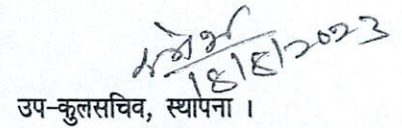 18/8/2023
उप-कुलसचिव, स्थापना ।